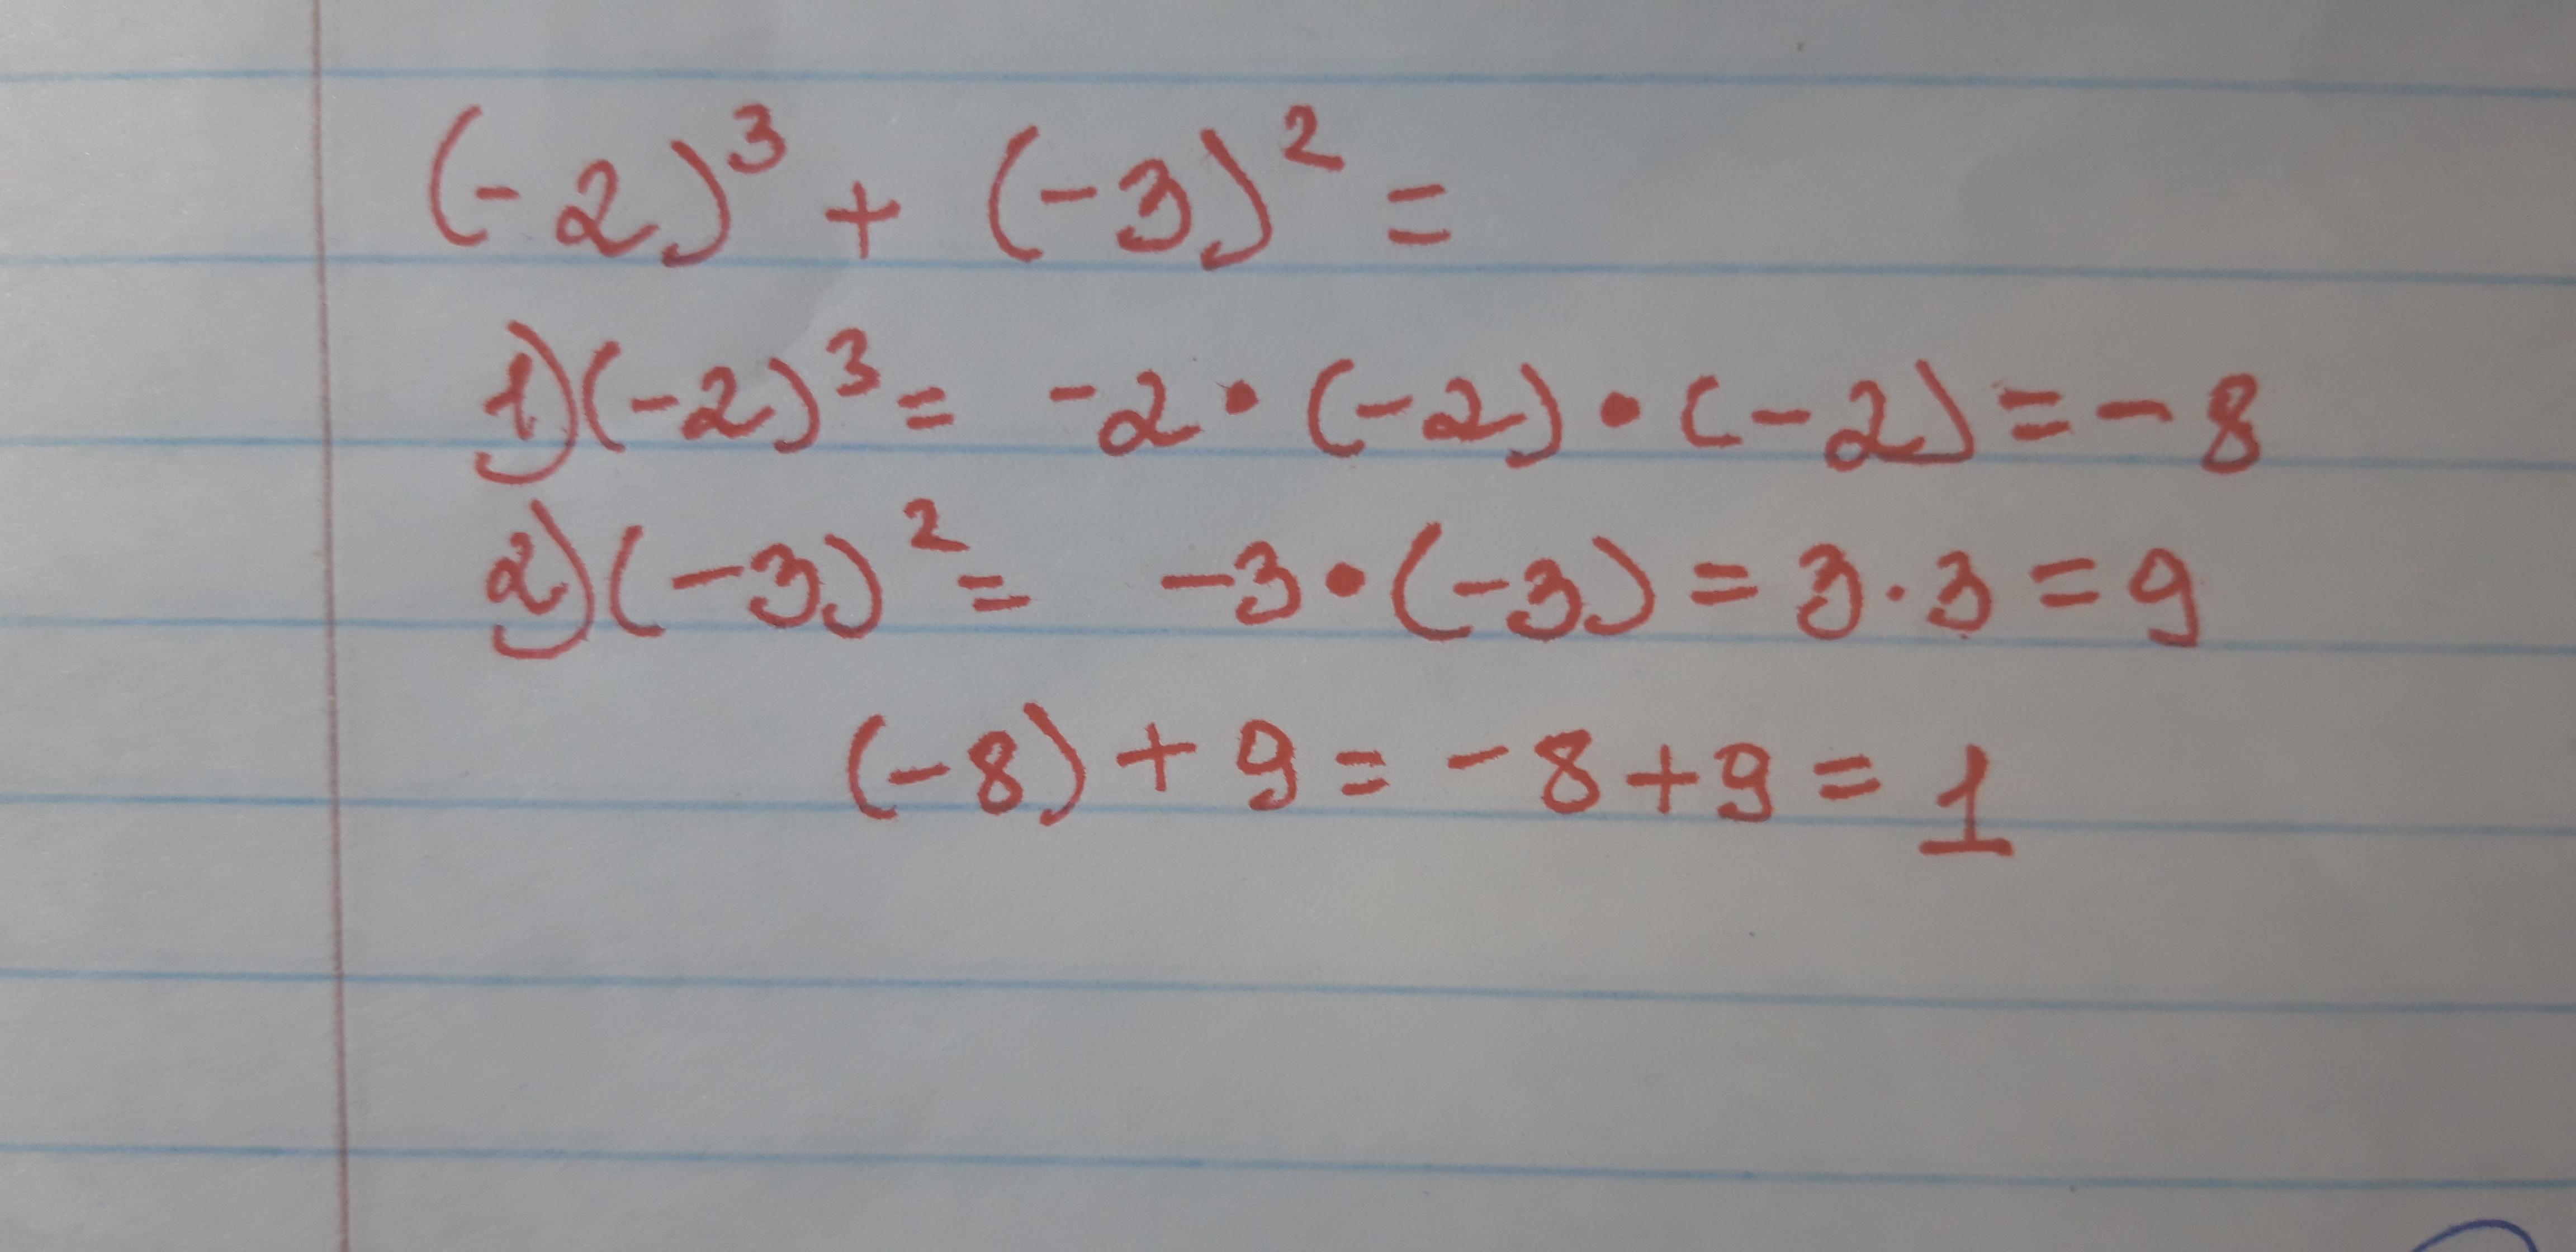 (-2)³ + (-3)² =
1) (-2)³ = -2 • (-2) • (-2) = -8
2) (-3)² = -3 • (-3) = 3 · 3 = 9
(-8) + 9 = -8 + 9 = 1